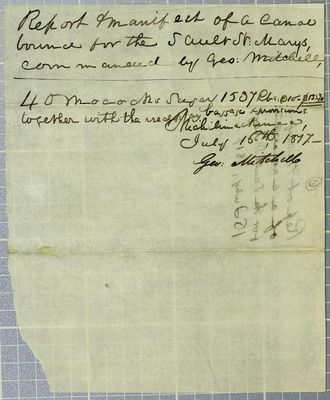 Report & manifect of a Canoe
bounce for the Sault St. Marys,
commanced by Geo. Mitchell,
40 Mococks Sugar 1537 lbs
together with the baggage & provisions
Michilimackinac,
July 16th, 1817—
Geo. Mitchell